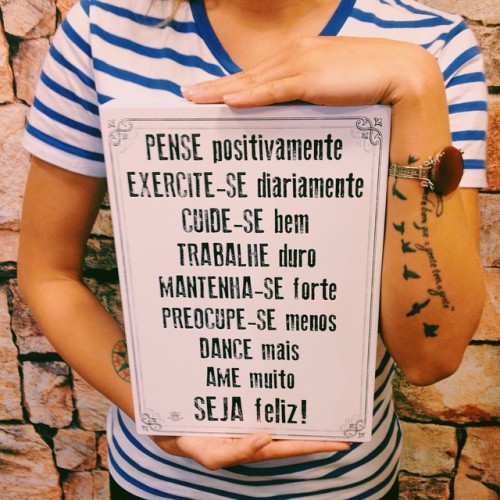 PENSE positivamente
EXERCITE-SE diariamente
CUIDE-SE bem
TRABALHE duro
MANTENHA-SE forte
PREOCUPE-SE menos
DANCE mais
AME muito
SEJA feliz!